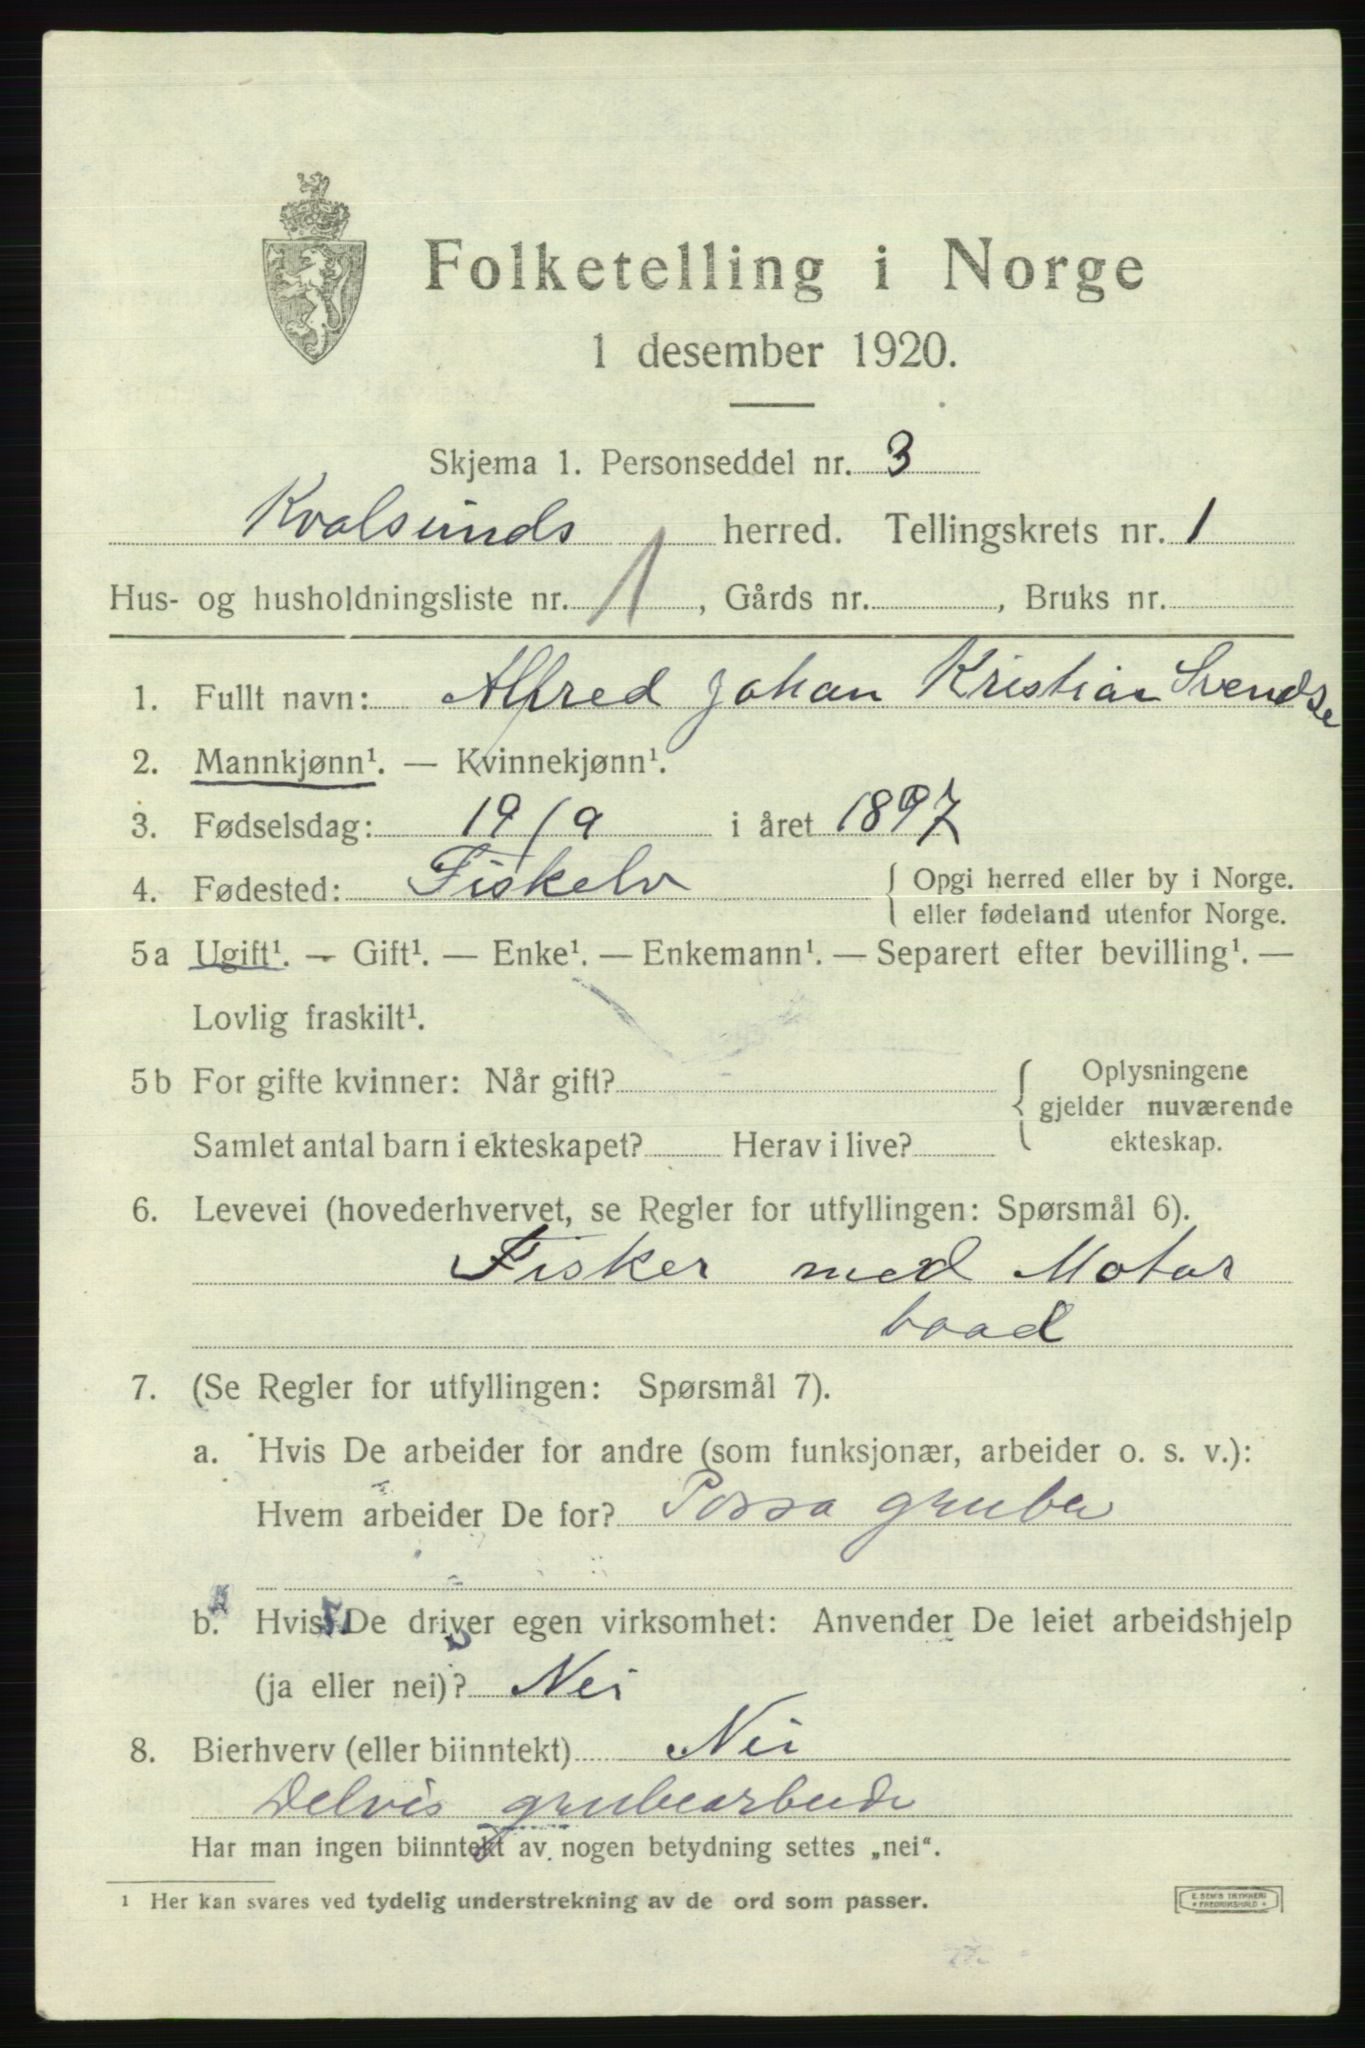 Folketelling i Norge
1 desember 1920.
Skjema 1. Personseddel nr. 3
Kvalsunds herred. Tellingskrets nr. 1
Hus- og husholdningsliste nr. 1, Gårds nr. , Bruks nr.
1. Fullt navn: Alfred Johan Kristian Svendse
2. Mannkjønn¹. — Kvinnekjønn¹.
3. Fødselsdag: 19/9 i året 1897
4. Fødested: Fiskelv { Opgi herred eller by i Norge.
eller fødeland utenfor Norge.
5a Ugift¹. — Gift¹. — Enke¹. — Enkemann¹. — Separert efter bevilling¹. —
Lovlig fraskilt¹.
5b For gifte kvinner: Når gift? { Oplysningene
gjelder nuværende
Samlet antal barn i ekteskapet? Herav i live? ekteskap.
6. Levevei (hovederhvervet, se Regler for utfyllingen: Spørsmål 6).
Fisker med Motor
baad
7. (Se Regler for utfyllingen: Spørsmål 7).
a. Hvis De arbeider for andre (som funksjonær, arbeider o. s. v.):
Hvem arbeider De for? Porsa gruber
b. Hvis De driver egen virksomhet: Anvender De leiet arbeidshjelp
(ja eller nei)? Nei
8. Bierhverv (eller biinntekt) Nei
Delvis grubearbeide
Har man ingen biinntekt av nogen betydning settes „nei“.
¹ Her kan svares ved tydelig understrekning av de ord som passer.
E. SEM'S TRYKKERI
* FREDRIKSHALD *